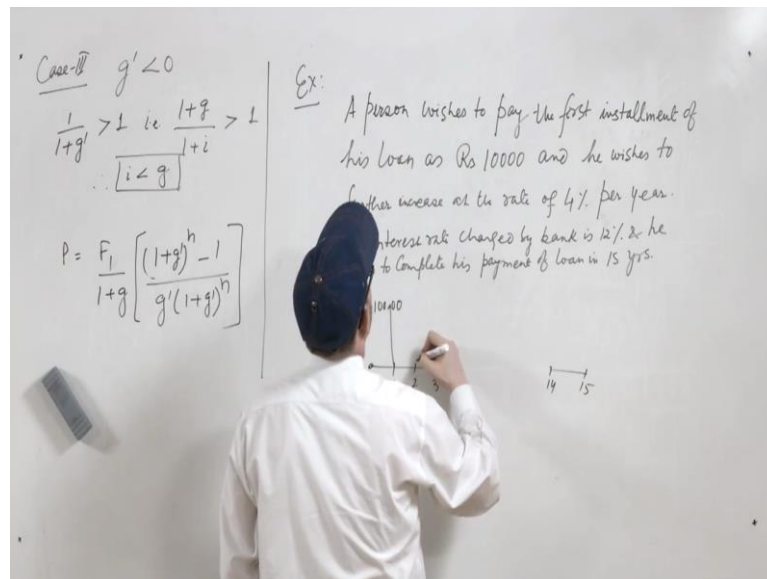 Case-III g' < 0
1/(1+g') > 1 ie (1+g)/(1+i) > 1
∴ i < g
P = F₁/(1+g) [((1+g')ⁿ - 1)/(g'(1+g')ⁿ)]
Ex:
A person wishes to pay the first installment of
his loan as Rs 10000 and he wishes to
increase at the rate of 4% per year.
interest rate charged by bank is 12% & he
to Complete his payment of loan in 15 yrs.
10000
2 3 14 15